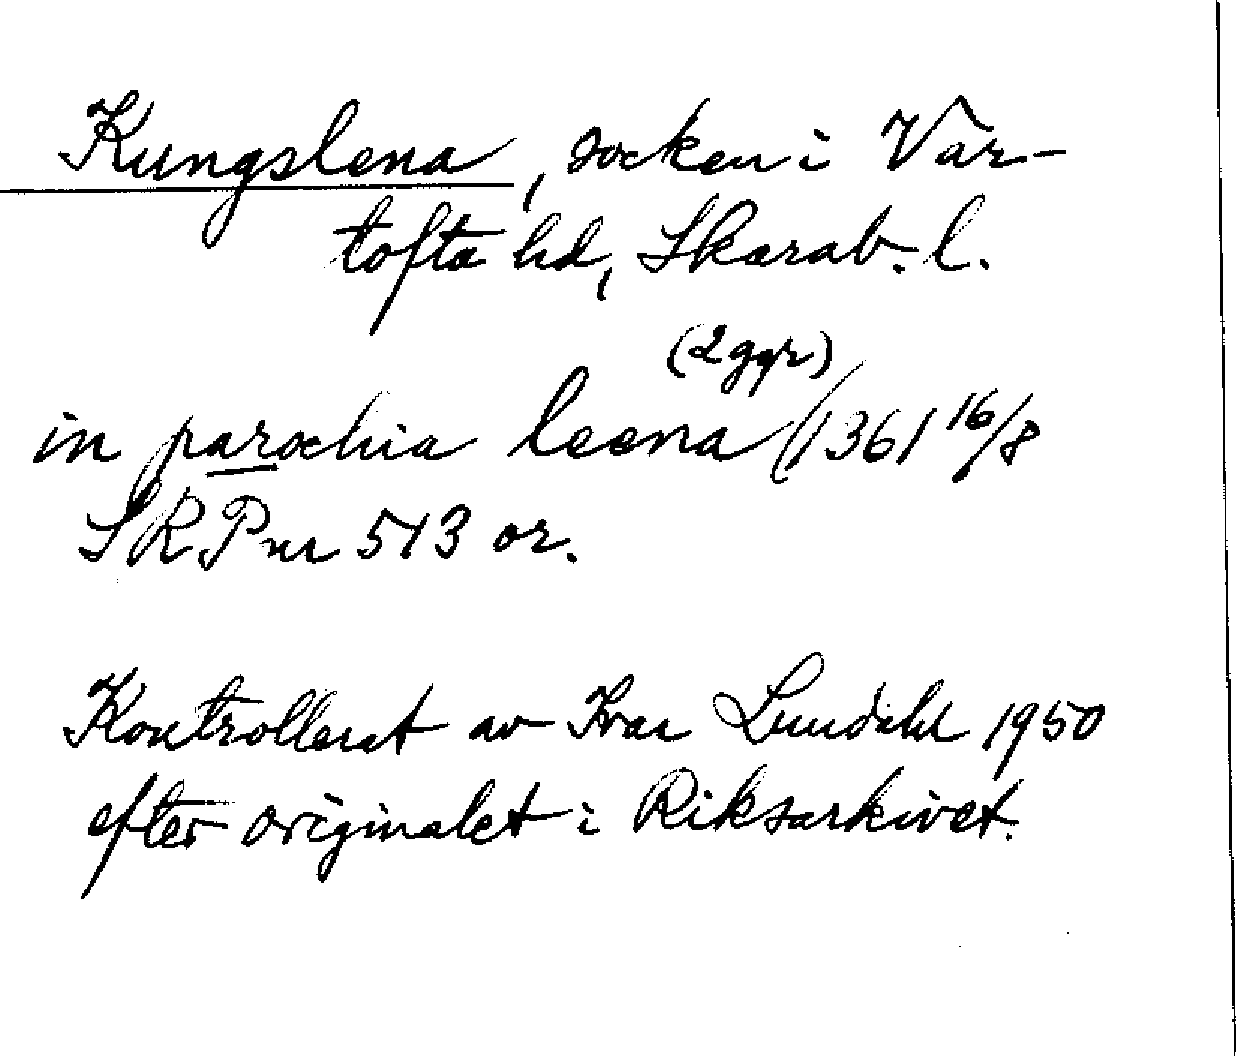 Kungslena, socken i Var-
tofta hd, Skarab. l.
(2 ggr)
in parochia leena 1361 16/8
SRP nr 513 or.
Kontrollerat av Ivar Lundahl 1950
efter originalet i Riksarkivet.